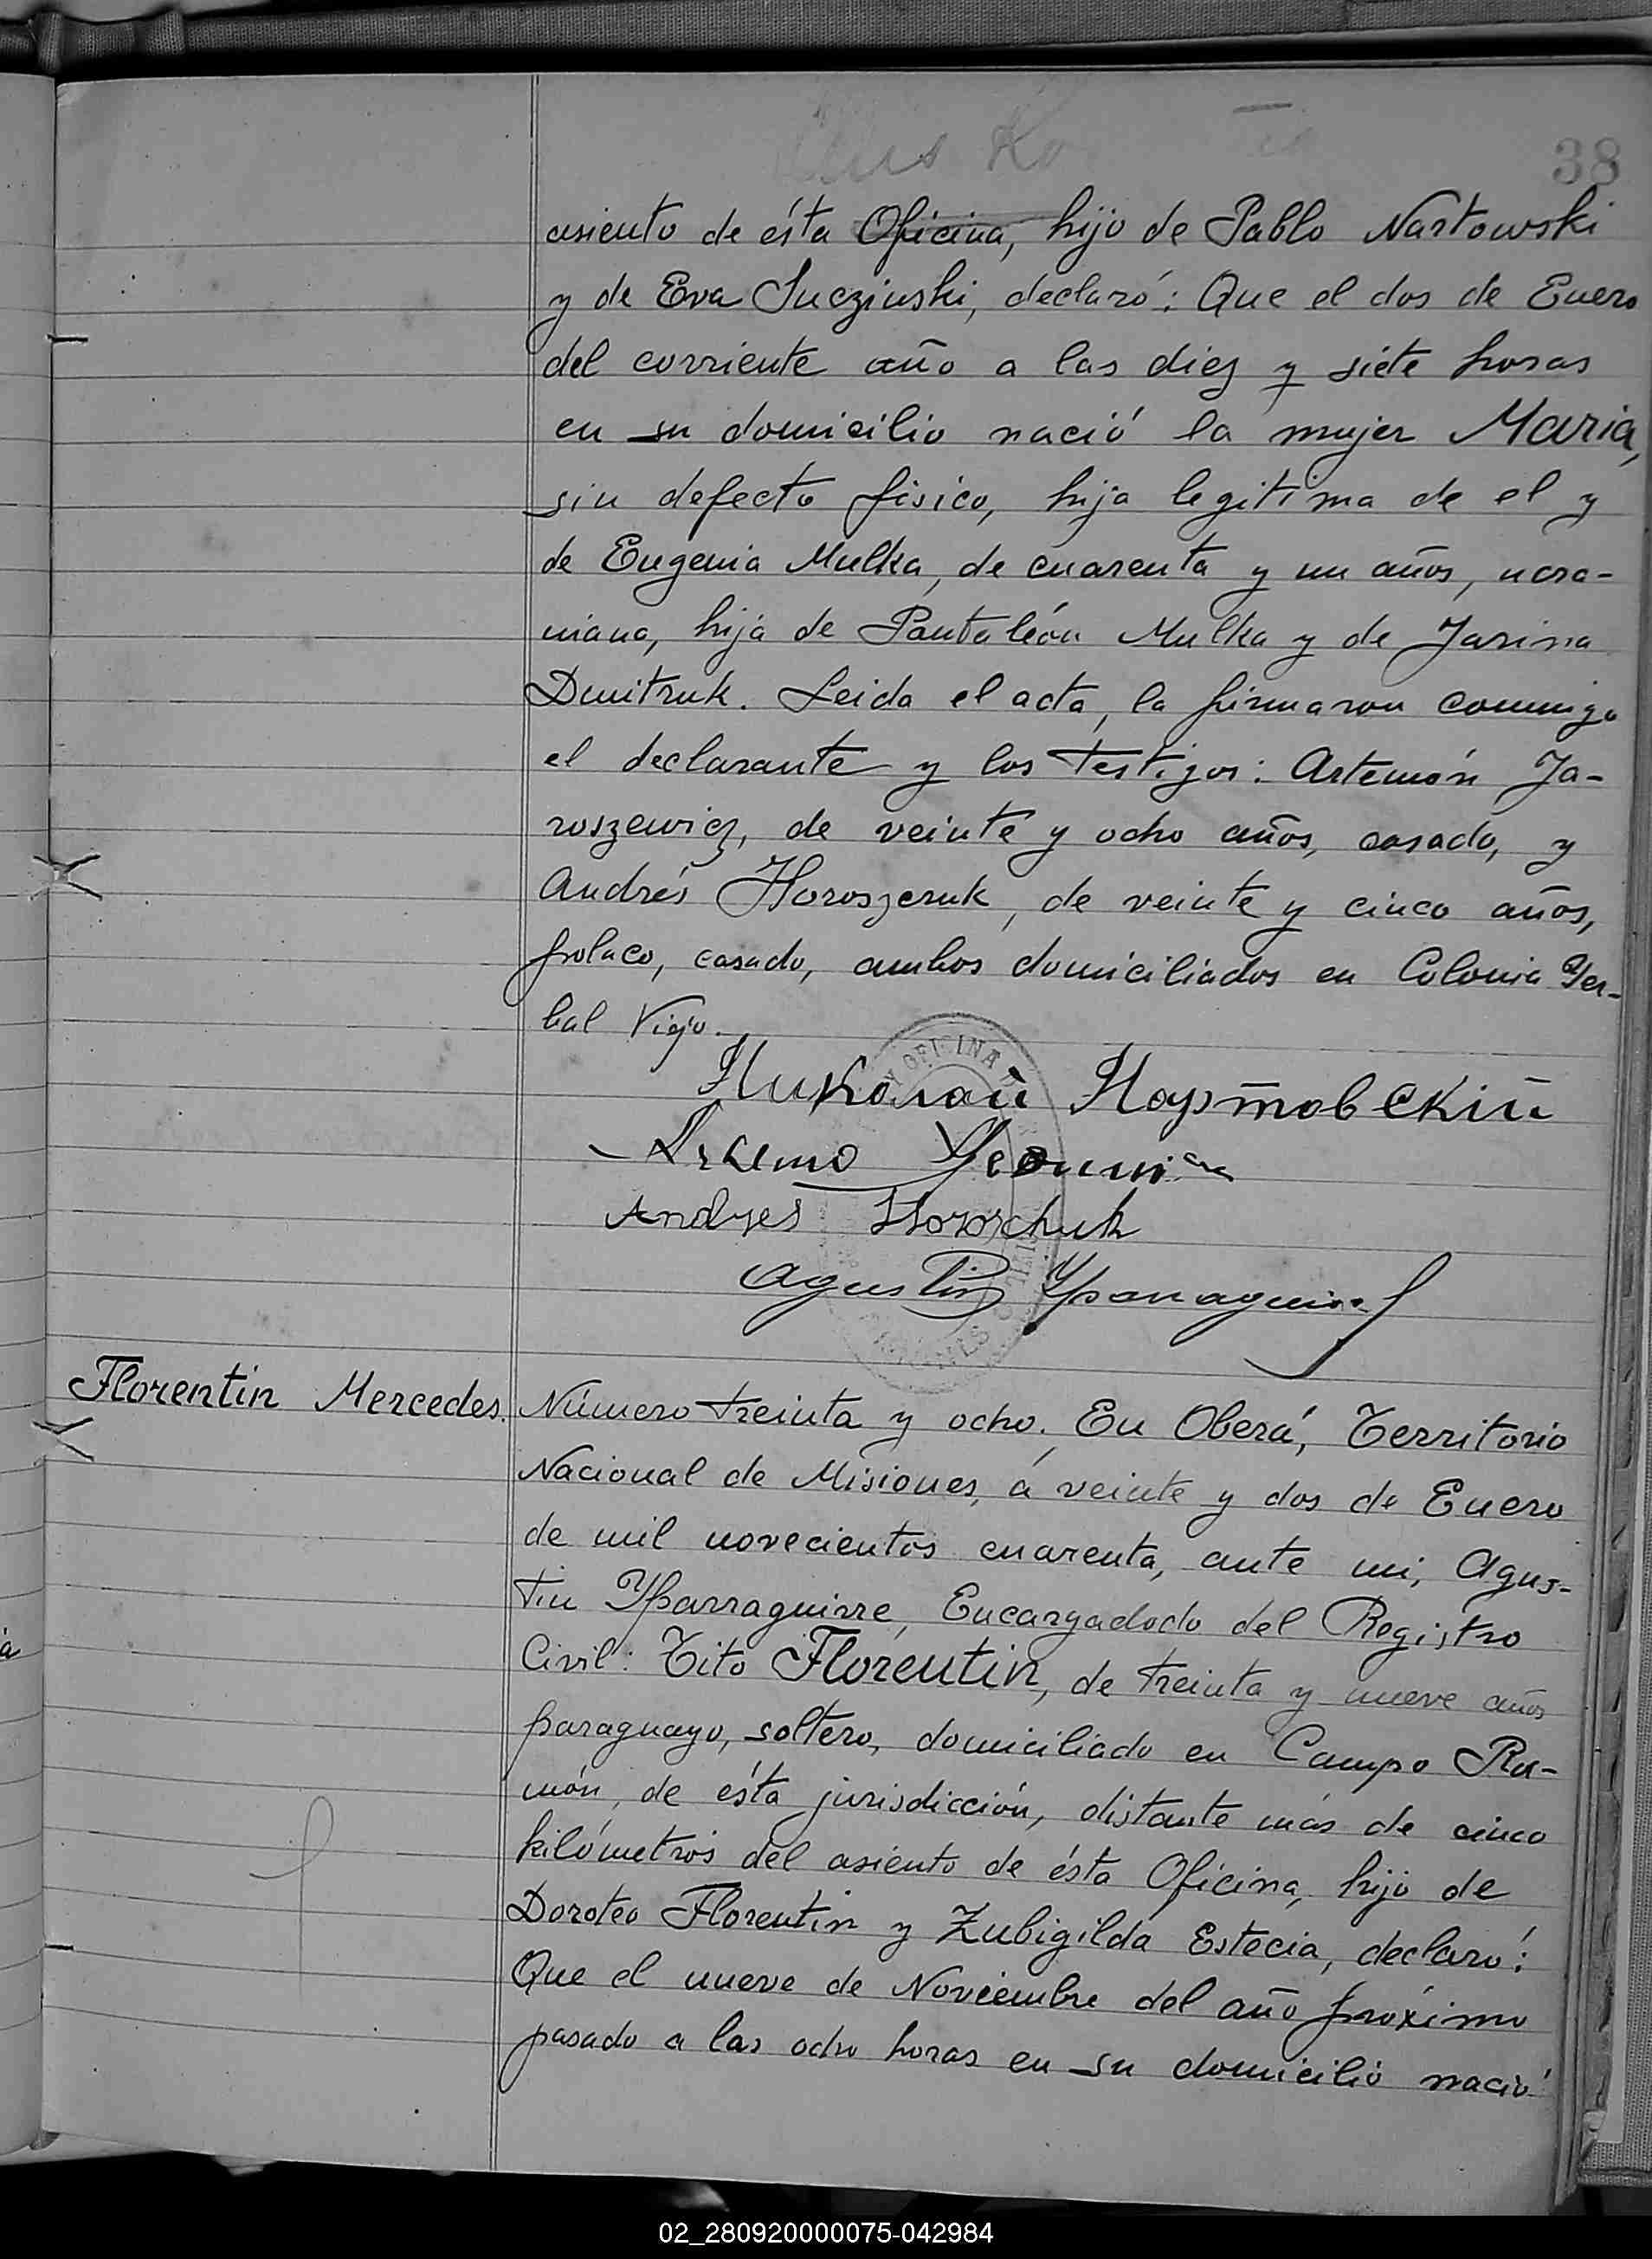 38
asiento de ésta Oficina, hijo de Pablo Nartowski
y de Eva Suczinski, declaró: Que el dos de Enero
del corriente año a las diez y siete horas
en su domicilio nació la mujer Maria,
sin defecto fisico, hija legitima de el y
de Eugenia Mulka, de cuarenta y un años, ucra-
niana, hija de Pantaleón Mulka y de Jarina
Dmitruk. Leida el acta, la firmaron conmigo
el declarante y los testigos: Artemón Ja-
roszewicz, de veinte y ocho años, casado, y
Andrés Horoszcruk, de veinte y cinco años,
polaco, casado, ambos domiciliados en Colonia Yer-
bal Viejo.
OFICINA
Николай Нартовскій
Andres Horoschuk
Agustin Ybarraguirre
Florentin Mercedes.
Número treinta y ocho. En Oberá, Territorio
Nacional de Misiones, á veinte y dos de Enero
de mil novecientos cuarenta, ante mi, Agus-
tin Ybarraguirre, Encargadodo del Registro
Civil: Tito Florentin, de treinta y nueve años
paraguayo, soltero, domiciliado en Campo Ra-
món, de ésta jurisdicción, distante más de cinco
kilómetros del asiento de ésta Oficina, hijo de
Doroteo Florentin y Zubigilda Estecia, declaró:
Que el nueve de Noviembre del año próximo
pasado a las ocho horas en su domicilio nació
02_280920000075-042984